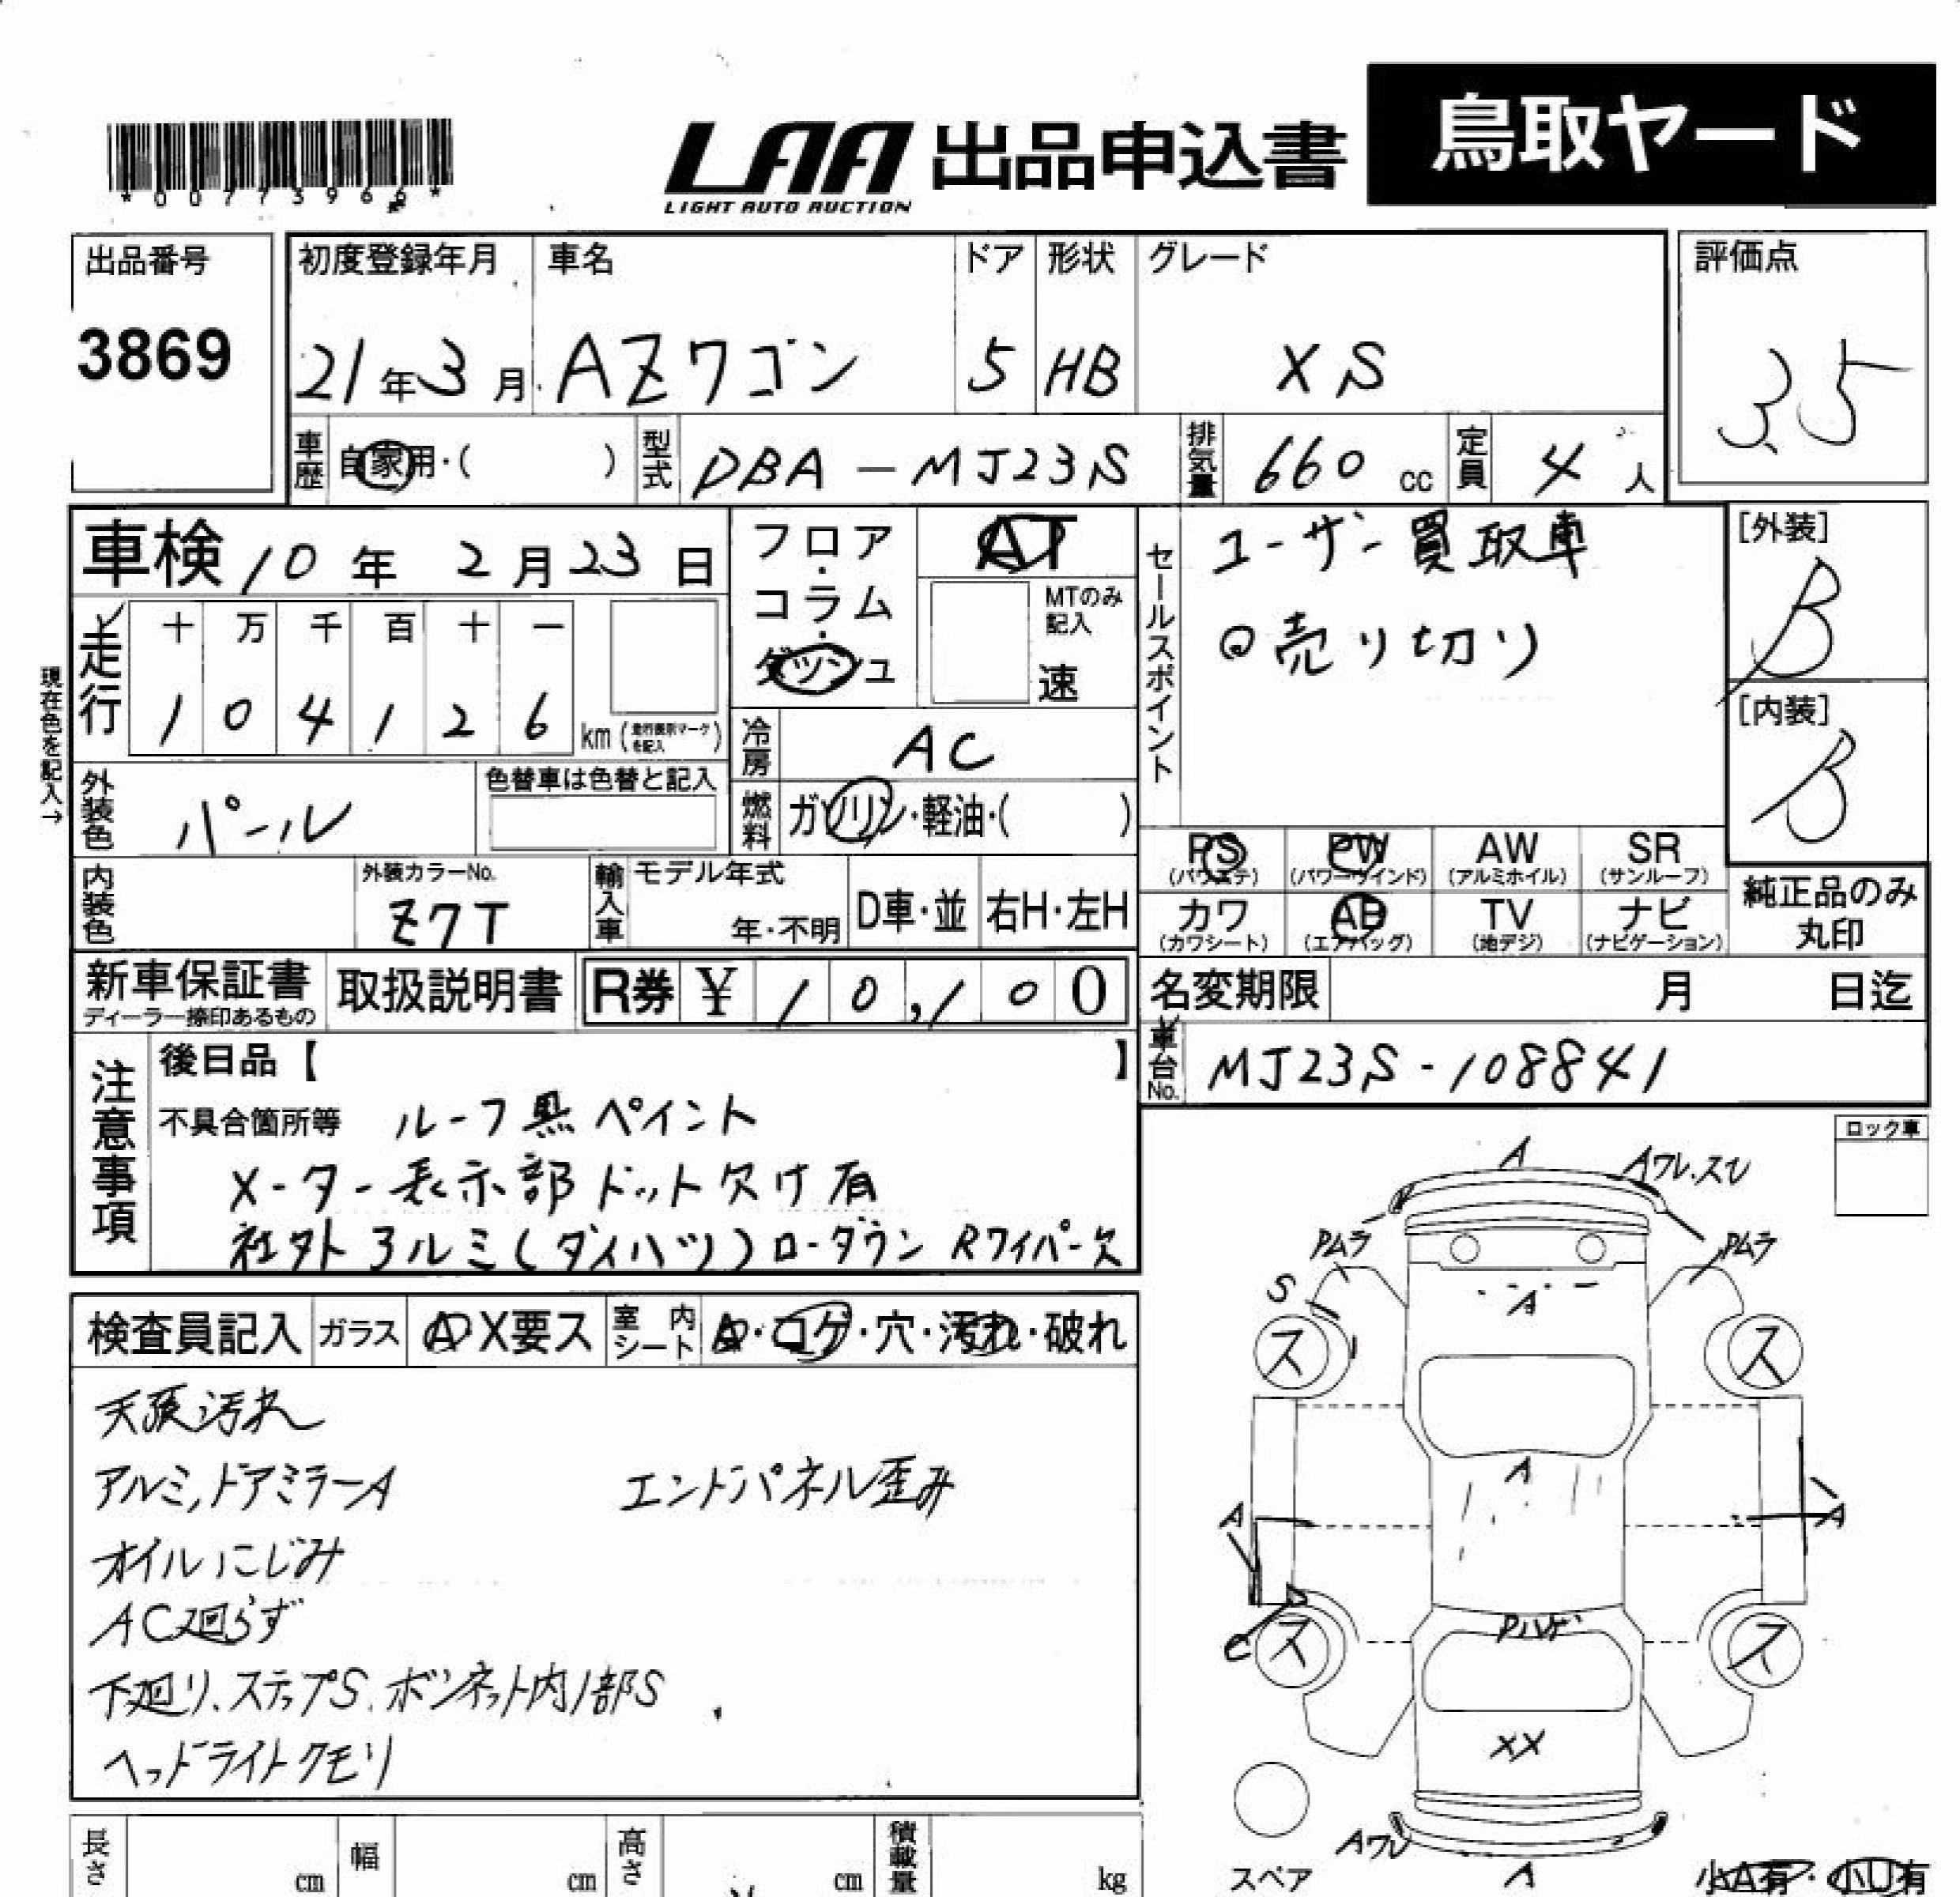 *00773966*
LAA 出品申込書 鳥取ヤード
LIGHT AUTO AUCTION
出品番号 初度登録年月 車名 ドア 形状 グレード 評価点
3869 21年3月 AZワゴン 5 HB XS 3.5
車歴 自家用・( ) 型式 DBA-MJ23S 排気量 660 cc 定員 4人
車検 10年 2月23日
フロア・コラム・ダッシュ
AT
MTのみ記入
速
セールスポイント
ユーザー買取車
◎売り切り
[外装]
B
[内装]
B
現在色を記入→
走行 十 万 千 百 十 一
1 0 4 1 2 6 km (走行表示マークを記入)
冷房 AC
外装色 パール 色替車は色替と記入
燃料 ガソリン・軽油・( )
PS (パワステ) PW (パワーウインド) AW (アルミホイル) SR (サンルーフ)
カワ (カワシート) AB (エアバッグ) TV (地デジ) ナビ (ナビゲーション)
純正品のみ丸印
内装色 外装カラーNo. Z7T 輸入車 モデル年式 年・不明 D車・並 右H・左H
新車保証書 ディーラー捺印あるもの 取扱説明書 R券 ¥ 10,100
名変期限 月 日迄
車台No. MJ23S-108841
注意事項
後日品【 】
不具合箇所等 ルーフ黒ペイント
メーター表示部ドット欠け有
社外アルミ(ダイハツ)ローダウン Rワイパー欠
ロック車
検査員記入 ガラス A X要ス 室内シート A・コゲ・穴・汚れ・破れ
天張汚れ
アルミ,ドアミラーA エンドパネル歪み
オイルにじみ
AC廻らず
下廻り、ステップS、ボンネット内部S
ヘッドライトクモリ
A
Aワレ.スレ
Pムラ
Pムラ
S
A
ス
ス
A
A
A
C
ス
Pハゲ
ス
XX
Aワレ
A
スペア
小A有・小U有
長さ cm 幅 cm 高さ cm 積載量 kg